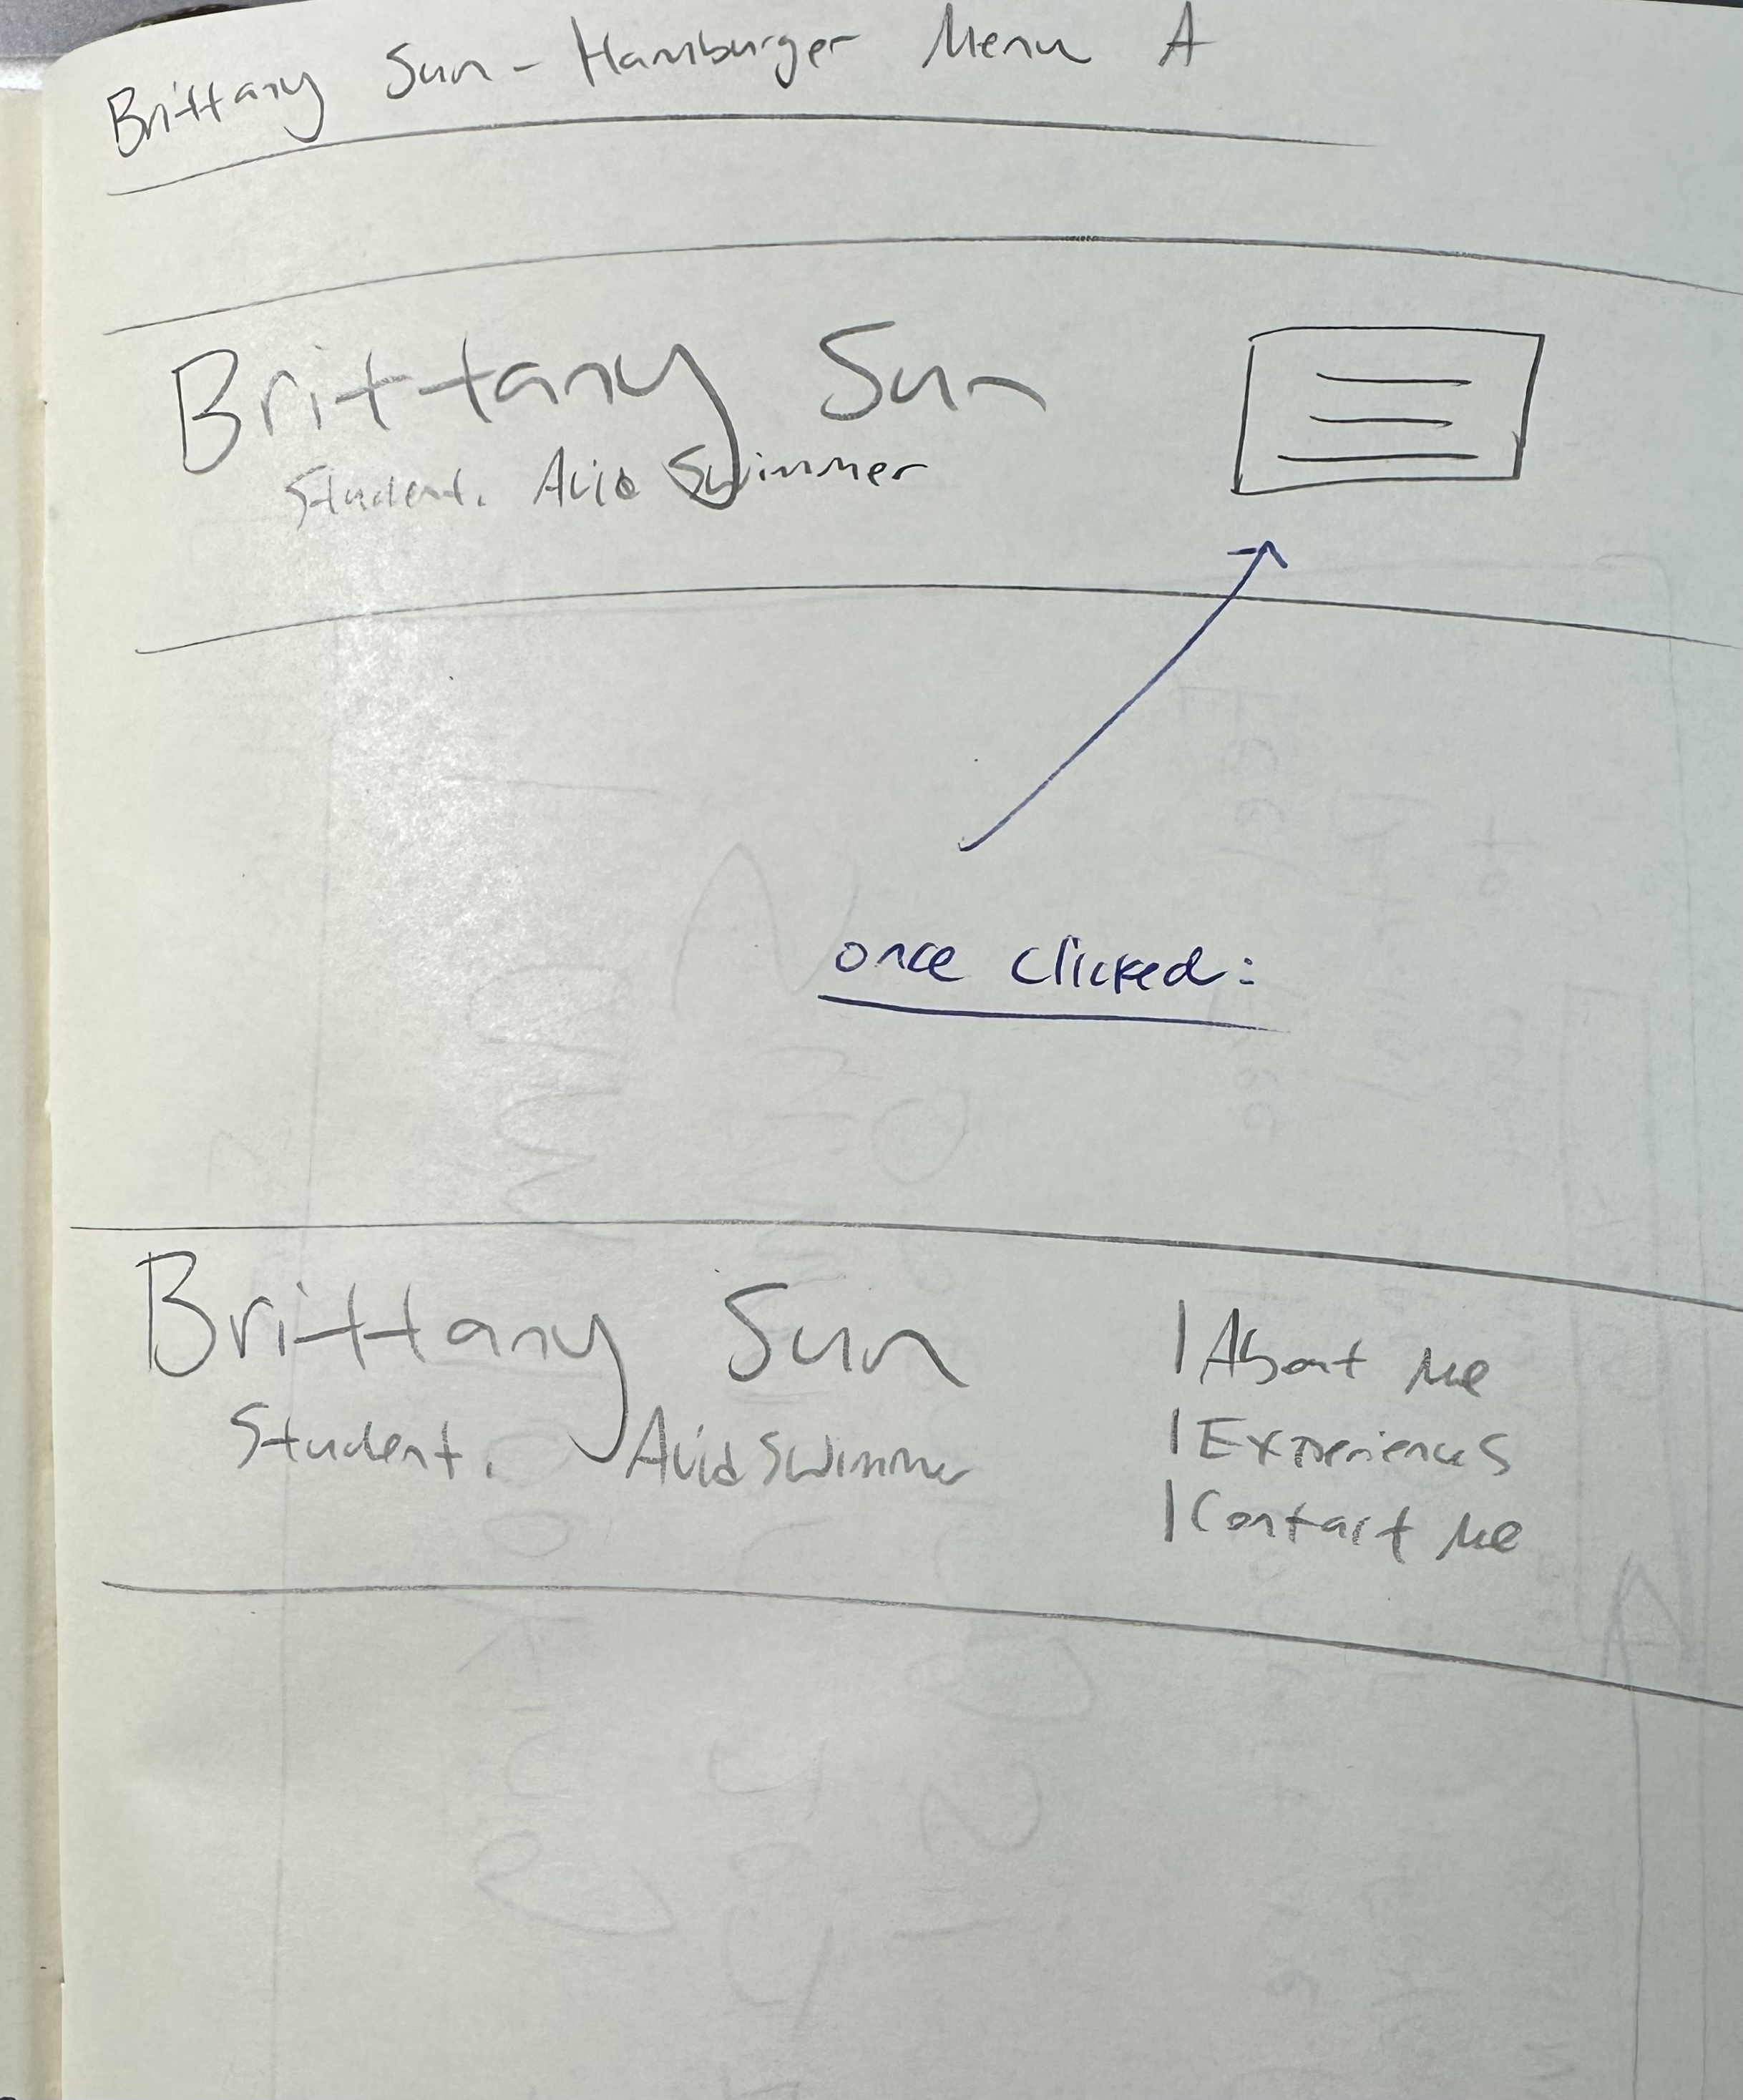 Brittany Sun - Hamburger Menu A
Brittany Sun
Student. Avid Swimmer
once clicked:
Brittany Sun
Student. Avid Swimmer
| About Me
| Experiences
| Contact Me